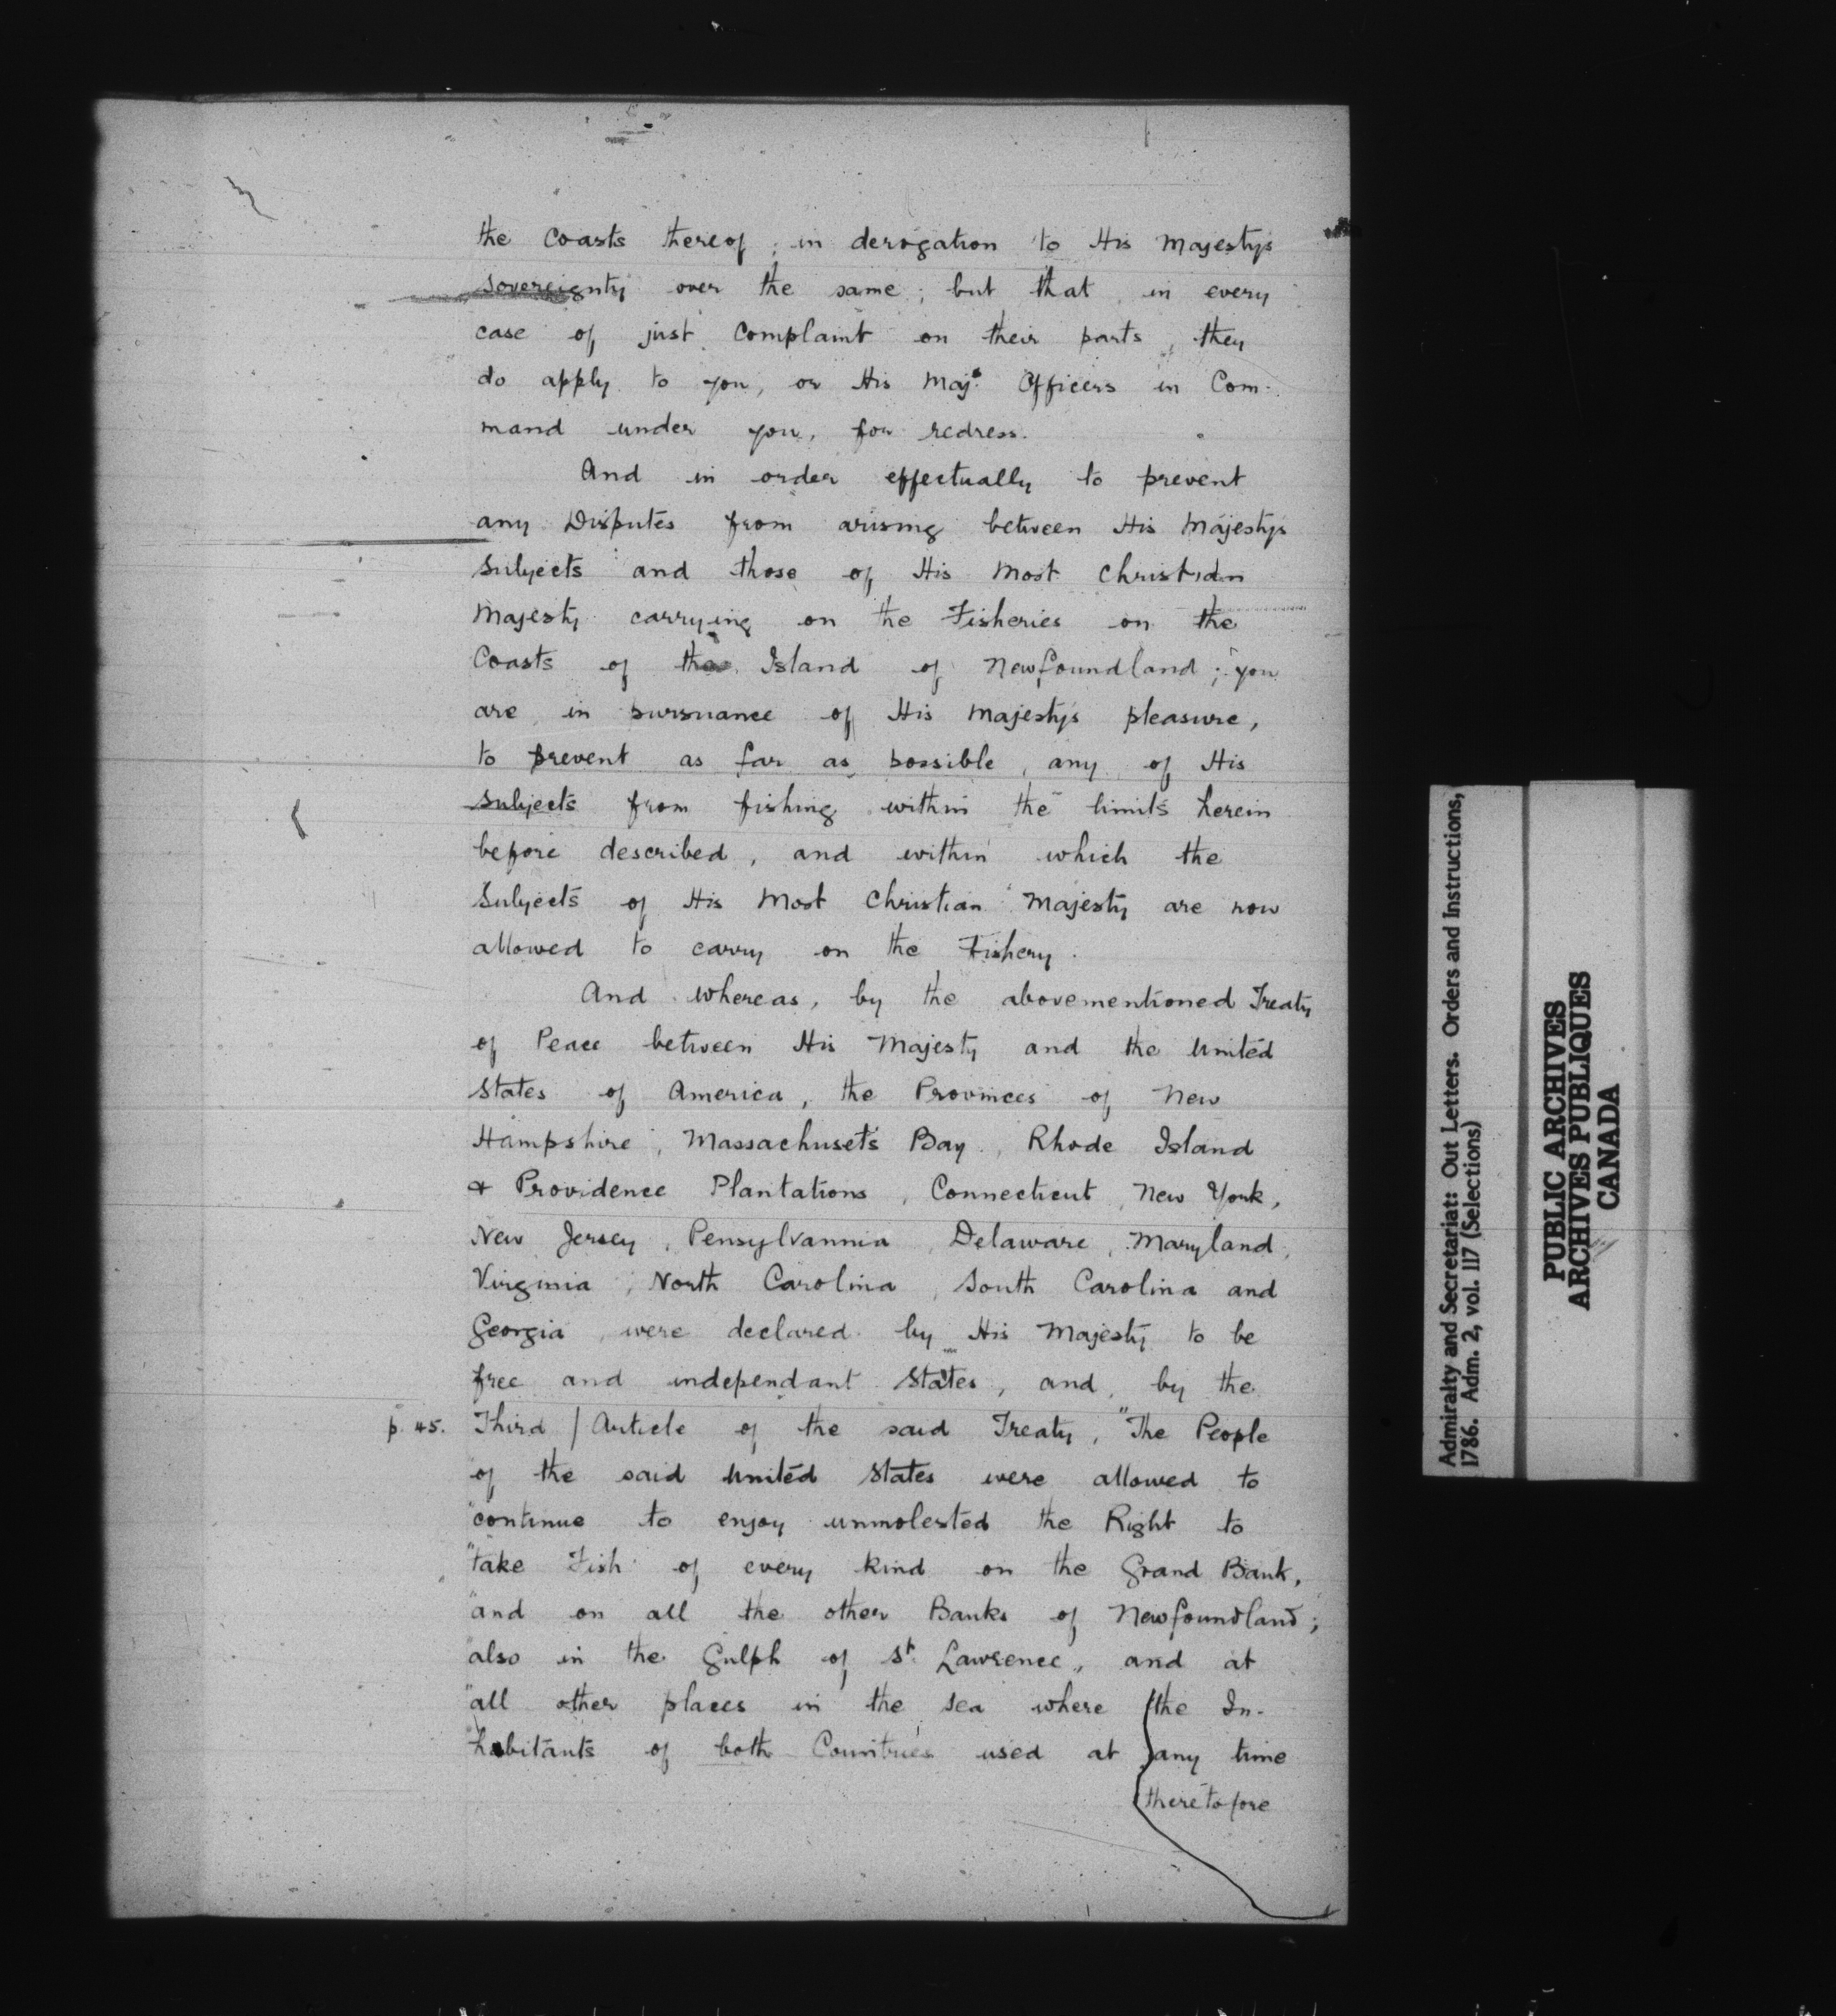 the Coasts thereof, in derogation to His Majestys
Sovereignty over the same; but that in every
case of just Complaint on their parts, they
do apply to you, or His Majs. Officers in Com-
mand under you, for redress.
And in order effectually to prevent
any Disputes from arising between His Majestys
Subjects and those of His Most Christian
Majesty carrying on the Fisheries on the
Coasts of the Island of Newfoundland; you
are in pursuance of His Majesty's pleasure,
to prevent as far as possible, any of His
Subjects from fishing within the limits herein
before described, and within which the
Subjects of His Most Christian Majesty are now
allowed to carry on the Fishery.
And whereas, by the abovementioned Treaty
of Peace between His Majesty and the United
States of America, the Provinces of New
Hampshire, Massachusets Bay, Rhode Island
& Providence Plantations, Connecticut, New York,
New Jersey, Pensylvannia, Delaware, Maryland,
Virginia, North Carolina, South Carolina and
Georgia, were declared by His Majesty to be
free and independant States, and, by the
p. 45. Third / Article of the said Treaty, "The People
of the said United States were allowed to
"continue to enjoy unmolested the Right to
"take Fish of every kind on the Grand Bank,
"and on all the other Banks of Newfoundland;
"also in the Gulph of St. Lawrence, and at
"all other places in the Sea where the In-
"habitants of both Countries used at any time
theretofore
Admiralty and Secretariat: Out Letters. Orders and Instructions,
1786. Adm. 2, vol. 117 (Selections)
PUBLIC ARCHIVES
ARCHIVES PUBLIQUES
CANADA